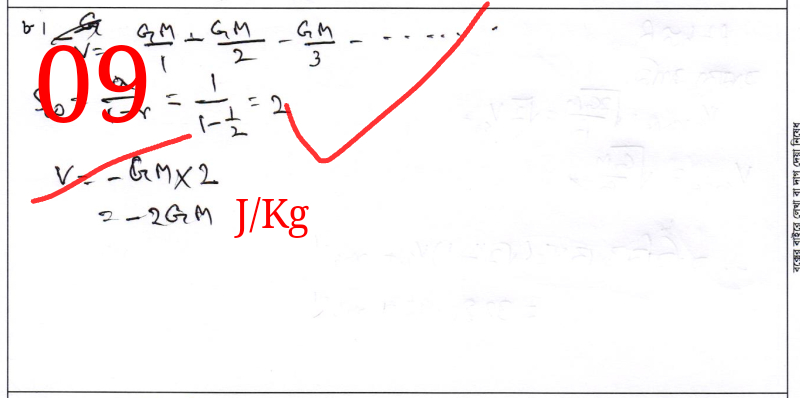 ৮।
V = - GM/1 - GM/2 - GM/3 - ......
09
S∞ = a/1-r = 1/1-1/2 = 2
V = - GM × 2
= - 2GM J/Kg
বক্সের বাইরে লেখা বা দাগ দেয়া নিষেধ